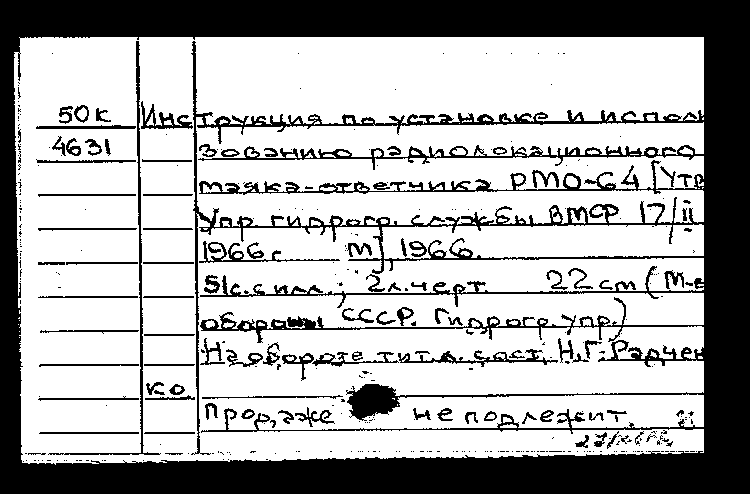 50к Инструкция по установке и исполь
4631 зованию радиолокационного
маяка-ответчика РМО-64 [Утв
Упр. гидрогр. службы ВМФ 17/II
1966 г М], 1966.
51с. с илл.; 2л. черт 22 cm (М-в
обороны СССР. Гидрогр. упр.)
На обороте тит. л. сост. Н.Г. Радчен
ко
Продаже не подлежит.